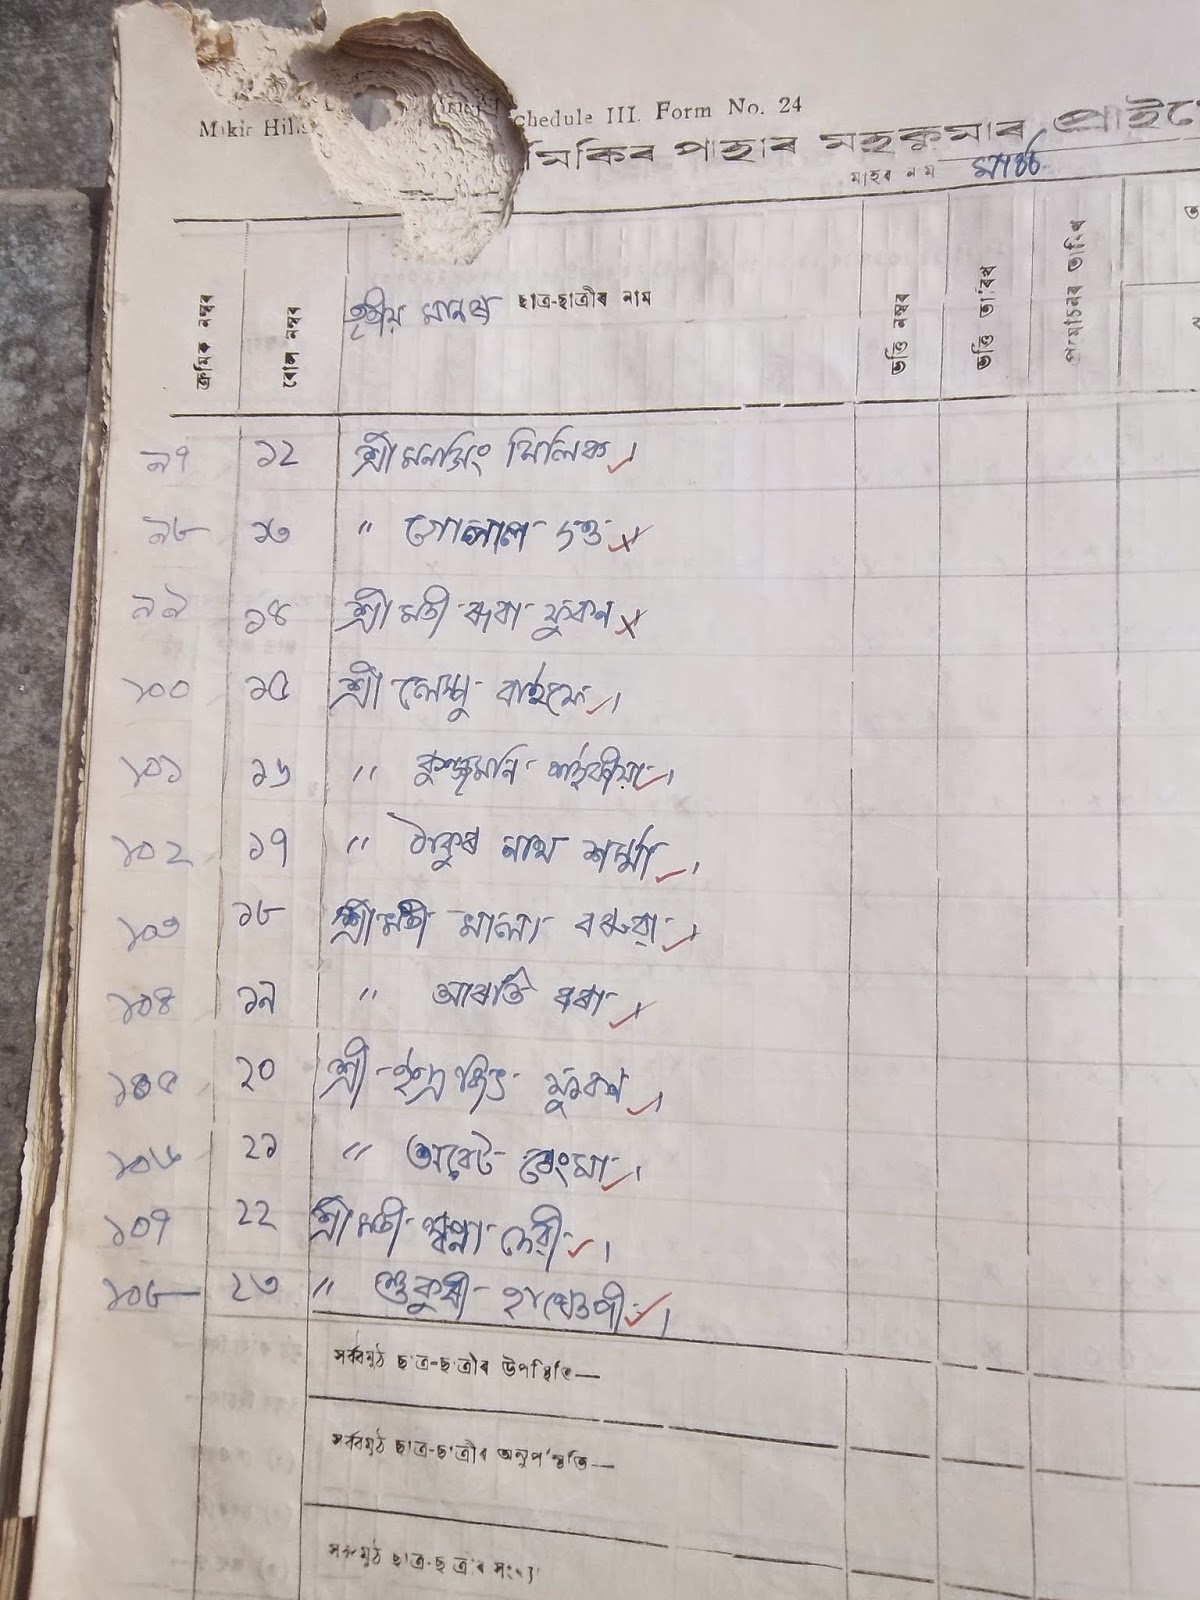 chedule III. Form No. 24
Mikir Hills
মিকিৰ পাহাৰ মহকুমাৰ প্ৰাইমে
মাহৰ নাম মাৰ্চ্চ
ক্ৰমিক নম্বৰ
ৰোল নম্বৰ
তৃতীয় মানৰ ছাত্ৰ-ছাত্ৰীৰ নাম
ভৰ্ত্তি নম্বৰ
ভৰ্ত্তি তাৰিখ
প্ৰমোচনৰ তাৰিখ
৯৭ ১২ শ্ৰী মনসিং মিলিক
৯৮ ১৩ " গোপাল দত্ত
৯৯ ১৪ শ্ৰীমতী ৰূবা ফুকন
১০০ ১৫ শ্ৰী
১০১ ১৬ " কুঞ্জমনি শইকীয়া
১০২ ১৭ " ঠাকুৰ নাথ শৰ্ম্মা
১০৩ ১৮ শ্ৰীমতী মালা বৰুৱা
১০৪ ১৯ " আৰতি বৰা
১০৫ ২০ শ্ৰী ইন্দ্ৰজিৎ ফুকন
১০৬ ২১ " ৰেংমা
১০৭ ২২ শ্ৰীমতী স্বপ্না দেৱী
১০৮ ২৩ "
সৰ্ব্বমুঠ ছাত্ৰ-ছাত্ৰীৰ উপস্থিতি—
সৰ্ব্বমুঠ ছাত্ৰ-ছাত্ৰীৰ অনুপস্থিতি—
সৰ্ব্বমুঠ ছাত্ৰ-ছাত্ৰীৰ সংখ্যা